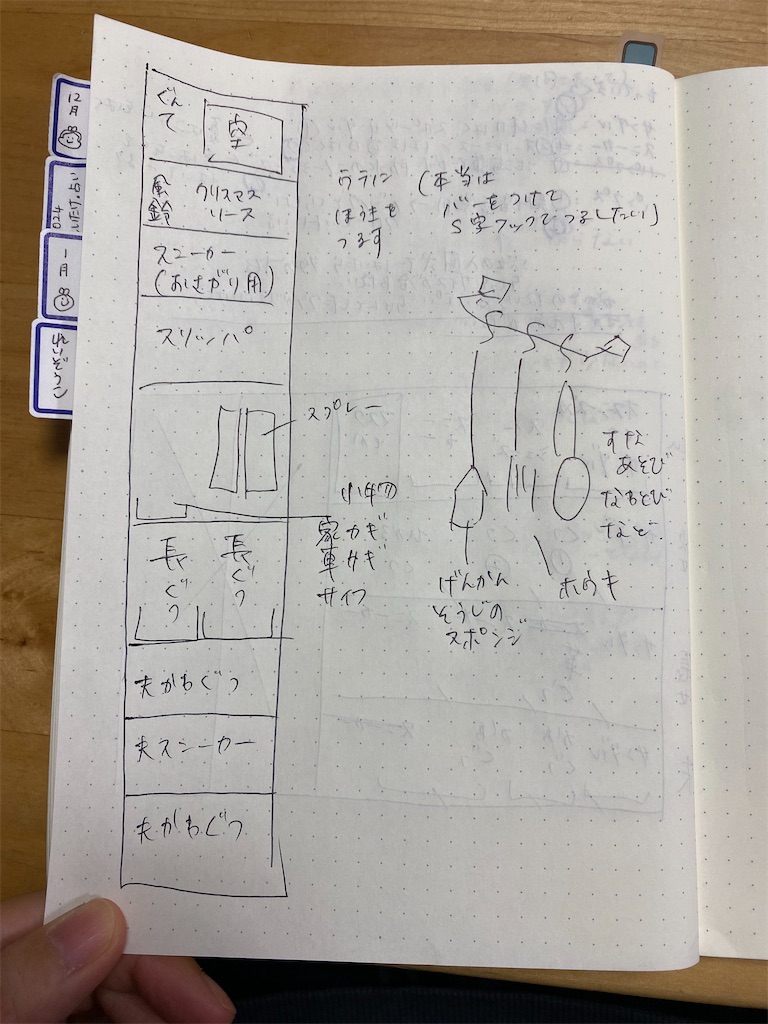 12
月
1
月
れいぞうこ
ぐん
て
空
風
鈴
クリスマス
リース
スニーカー
(おさがり用)
スリッパ
スプレー
小物
家カギ
車カギ
サイフ
長ぐつ
長ぐつ
夫かわぐつ
夫スニーカー
夫かわぐつ
ウラに
ほうきを
つるす
(本当は
バーをつけて
S字フックでつるしたい)
すな
あそび
なわとび
など
げんかん
そうじの
スポンジ
ホウキ